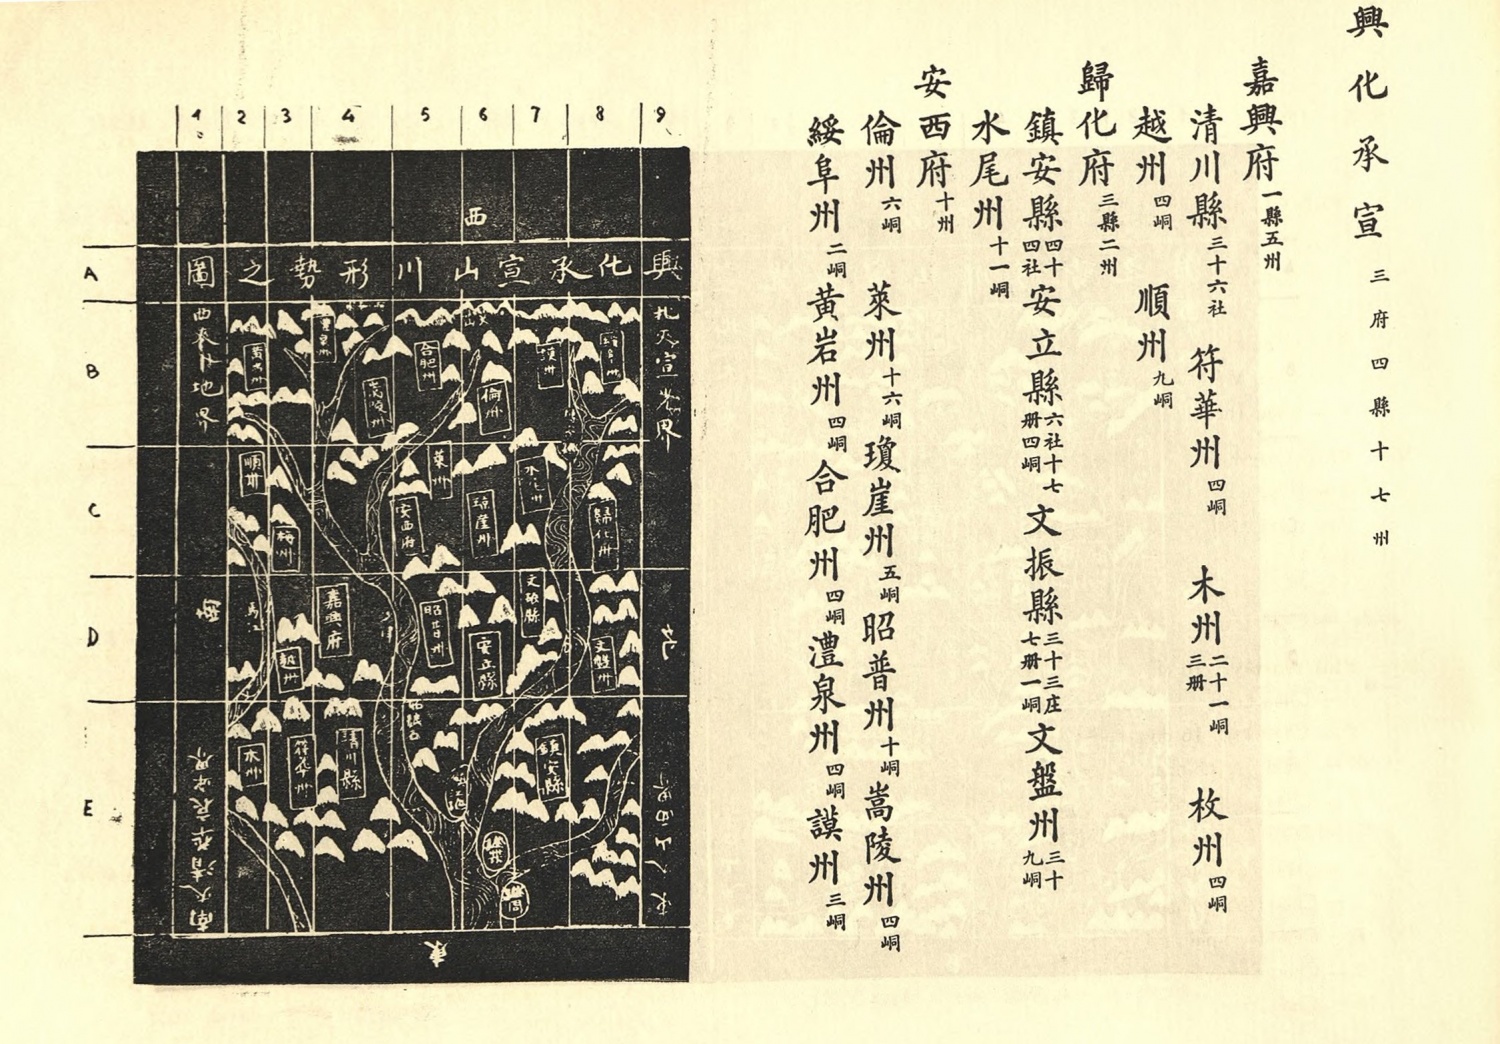 興化承宣 三府四縣十七州
嘉興府 一縣五州
清川縣 三十六社 符華州 四峒 木州 二十一峒三册 枚州 四峒
越州 四峒 順州 九峒
歸化府 三縣二州
鎮安縣 四十四社 安立縣 六社十七册四峒 文振縣 三十三庄七册一峒 文盤州 三十九峒
水尾州 十一峒
安西府 十州
倫州 六峒 萊州 十六峒 瓊崖州 五峒 昭普州 十峒 嵩陵州 四峒
綏阜州 二峒 黄岩州 四峒 合肥州 四峒 澧泉州 四峒 謨州 三峒
1 2 3 4 5 6 7 8 9
西
興化承宣山川形勢之圖
A
B
C
D
E
合肥州
倫州
嵩陵州
順州
萊州
安西府
瓊崖州
歸化州
梅州
嘉興府
昭普州
文振縣
安立縣
文盤州
越州
木州
符華州
清川縣
鎮安縣
東